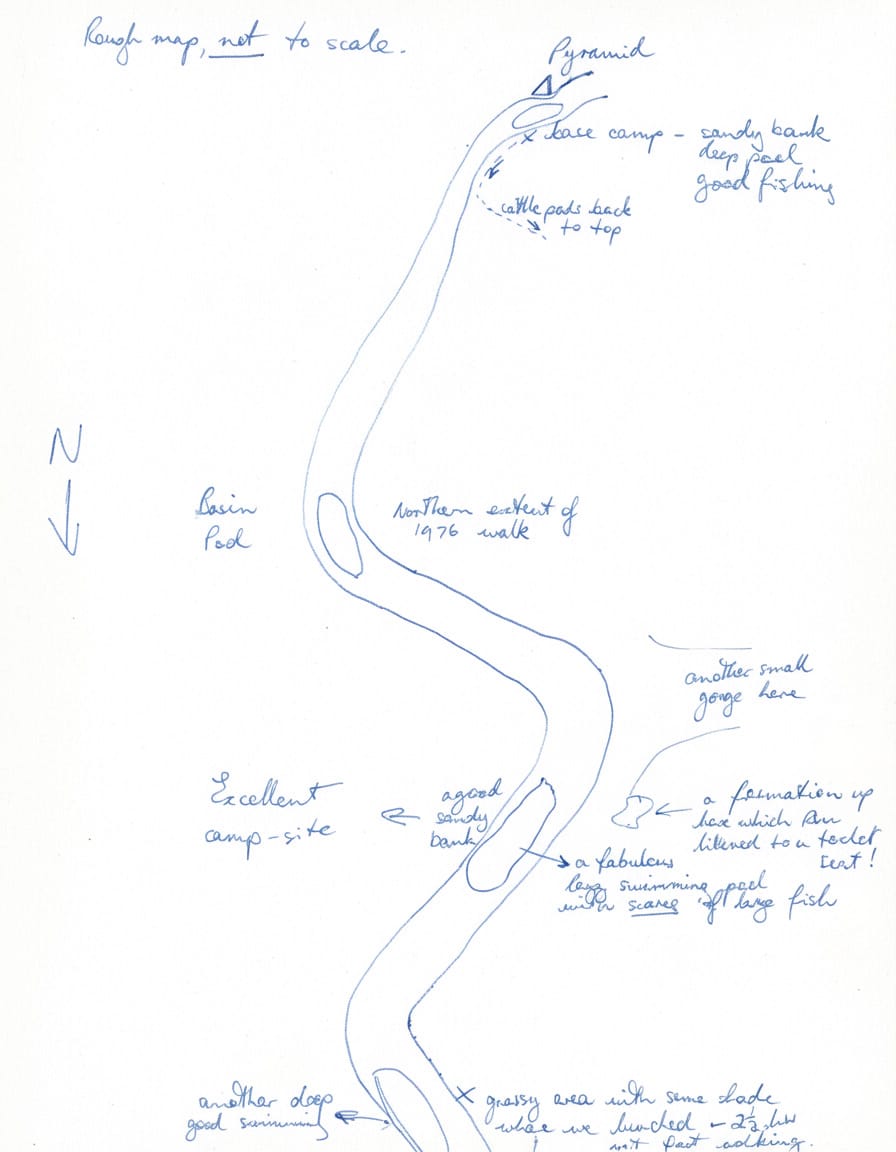 Rough map, not to scale.
Pyramid
base camp - sandy bank
deep pool
good fishing
cattle pads back
to top
N
Basin
Pool
Northern extent of
1976 walk
another small
gorge here
Excellent
camp-site
a good
sandy
bank
a formation up
here which
likened to a toilet
seat!
a fabulous
long swimming pool
with scores of large fish
another deep
good swimming
grassy area with some shade
where we lunched - 2½ hrs
not fast walking.